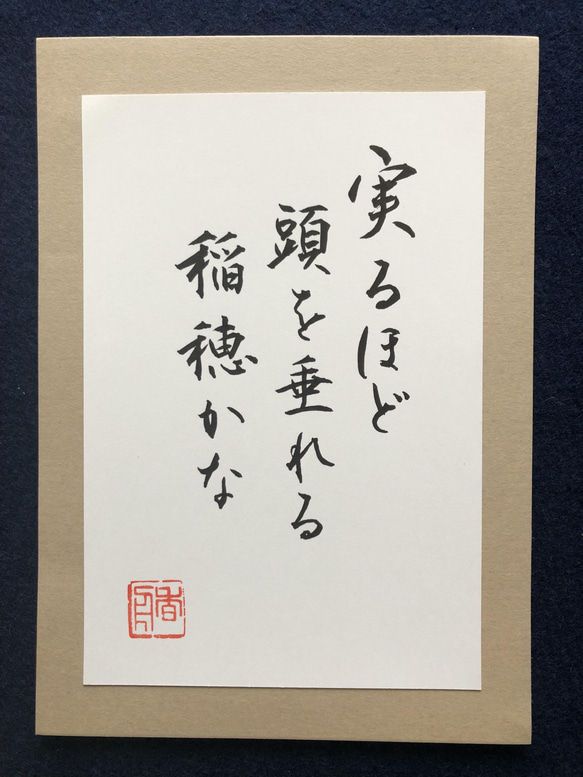 実るほど
頭を垂れる
稲穂かな